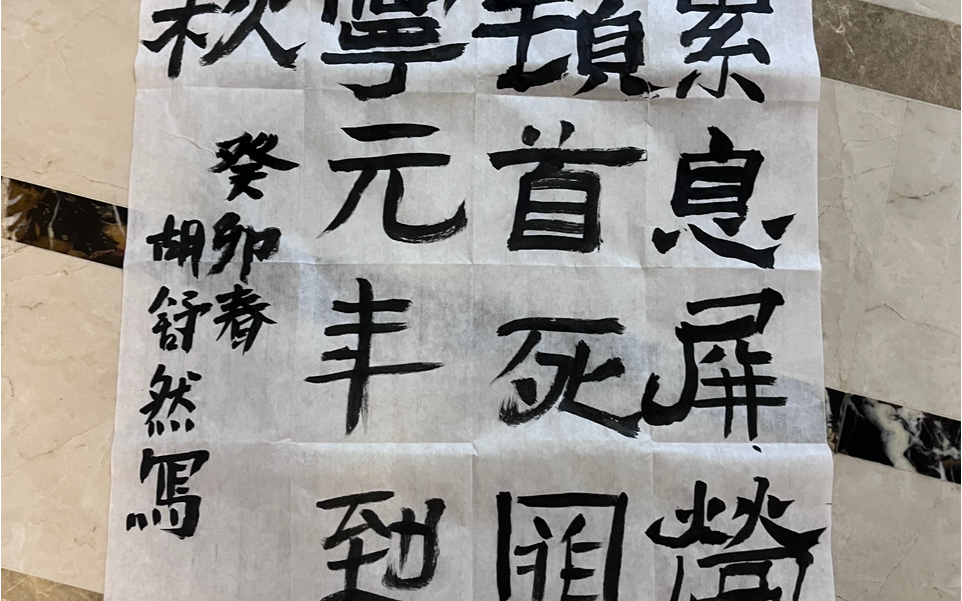 累息屏營
頓首死罪
寧元年到
秋
癸卯春
胡舒然寫